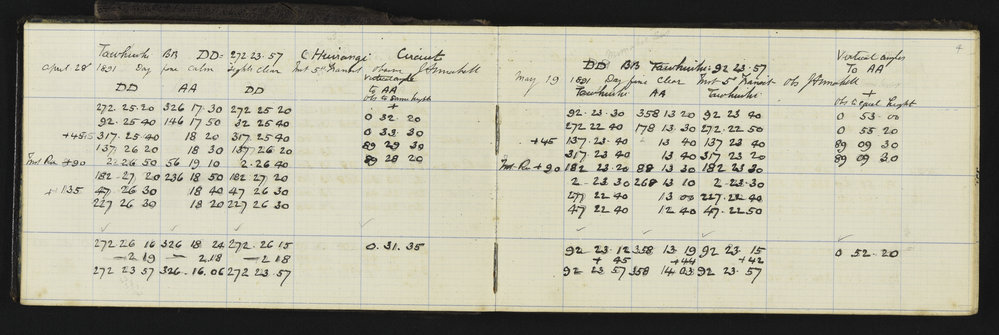 Tawhiwhi BB DD = 272 23.57 C Huirangi Circuit
April 28th 1891 Day fine calm Lights clear Inst 5" Transit observer
Vertical angle
DD AA DD to AA
obs to same height
+
272.25.20 326 17.30 272 25 20 0 32 20
92.25.40 146 17 50 32 25 40 0 33 30
+45 317.25.40 18 20 317.25 40 89 29 30
137.26 20 18 30 137 26.20 89 28 20
Inst Rev +90 2.26 50 56 19 10 2.26 40
182.27 20 236 18 50 182.27 20
+135 47.26 30 18 40 47 26 30
227 26 30 18 20 227 26 30
272 26 16 326 18 24 272.26 15 0.31.35
—2 19 — 2.18 —2 18
272 23 57 326.16.06 272 23.57
4
Vertical angles
DD BB Tawhiwhi: 92.23.57 To AA
May 19 1891 Day fine Clear Inst 5" Transit obs
Tawhiwhi AA Tawhiwhi +
obs to equal height
92.23.30 358 13 20 92 23 40 0 53 00
272 22 40 178 13 30 272.22 50 0 55 20
+45 137.23.40 13 40 137 23 40 89 09 30
317.23 40 13 40 317 23 20 89 09 30
Inst Rev +90 182 23.20 88 13 30 182 23 30
2.23 30 268 13 10 2.23.30
227 22 40 13 00 227.22 40
47 22 40 12 40 47.22 50
92 23.12 358 13 19 92 23 15 0 52.20
+ 45 +44 +42
92 23 57 358 14 03 92 23.57